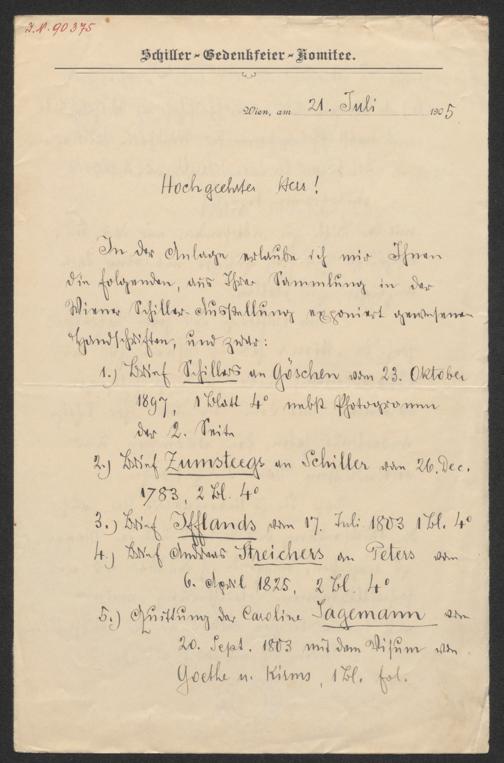 I.N. 90375
Schiller-Gedenkfeier-Komitee.
Wien, am 21. Juli 1905
Hochgeehrter Herr!
In der Anlage erlaube ich mir Ihnen
die folgenden, aus Ihrer Sammlung in der
Wiener Schiller-Ausstellung exponiert gewesenen
Handschriften, und zwar:
1.) Brief Schillers an Göschen vom 23. Oktober
1897, 1 Blatt 4° nebst Photogramm
der 2. Seite
2.) Brief Zumsteegs an Schiller vom 26. Dec.
1783, 2 Bl. 4°
3.) Brief Ifflands vom 17. Juli 1803 1 Bl. 4°
4.) Brief Andreas Streichers an Peters vom
6. April 1825, 2 Bl. 4°
5.) Quittung der Caroline Jagemann vom
20. Sept. 1803 mit dem Visum von
Goethe u. Kirms, 1 Bl. fol.